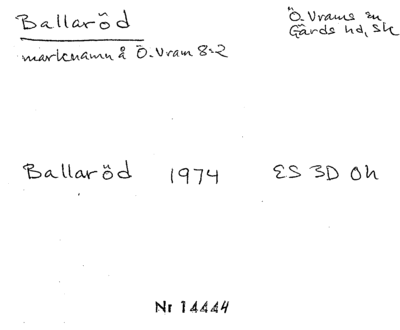 Ballaröd
Ö. Vrams sn
Gärds hd, Sk
marknamn å Ö. Vram 8:2
Ballaröd 1974 ES 3D 0h
Nr 14444